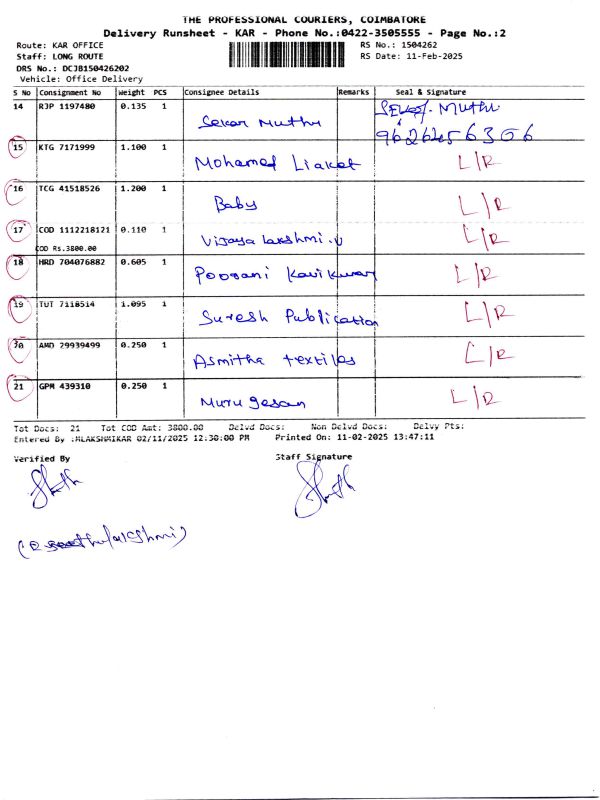 THE PROFESSIONAL COURIERS, COIMBATORE
Delivery Runsheet - KAR - Phone No.:0422-3505555 - Page No.:2
Route: KAR OFFICE RS No.: 1504262
Staff: LONG ROUTE RS Date: 11-Feb-2025
DRS No.: DCJB150426202
Vehicle: Office Delivery
S No Consignment No Weight PCS Consignee Details Remarks Seal & Signature
14 RJP 1197480 0.135 1 Sekar Muthu Muthu
9626456306
15 KTG 7171999 1.100 1 Mohamed Liakat L/R
16 TCG 41518526 1.200 1 Baby L/R
17 COD 1112218121 0.110 1 Vijaya lakshmi.v L/R
COD Rs.3800.00
18 HRD 704076882 0.605 1 Poorani Kavikumar L/R
19 TUT 7118514 1.095 1 Suresh Publication L/R
20 AMD 29939499 0.250 1 Asmitha textiles L/R
21 GPM 439310 0.250 1 Murugesan L/R
Tot Docs: 21 Tot COD Amt: 3800.00 Delvd Docs: Non Delvd Docs: Delvy Pts:
Entered By :MLAKSHMIKAR 02/11/2025 12:30:00 PM Printed On: 11-02-2025 13:47:11
Verified By Staff Signature